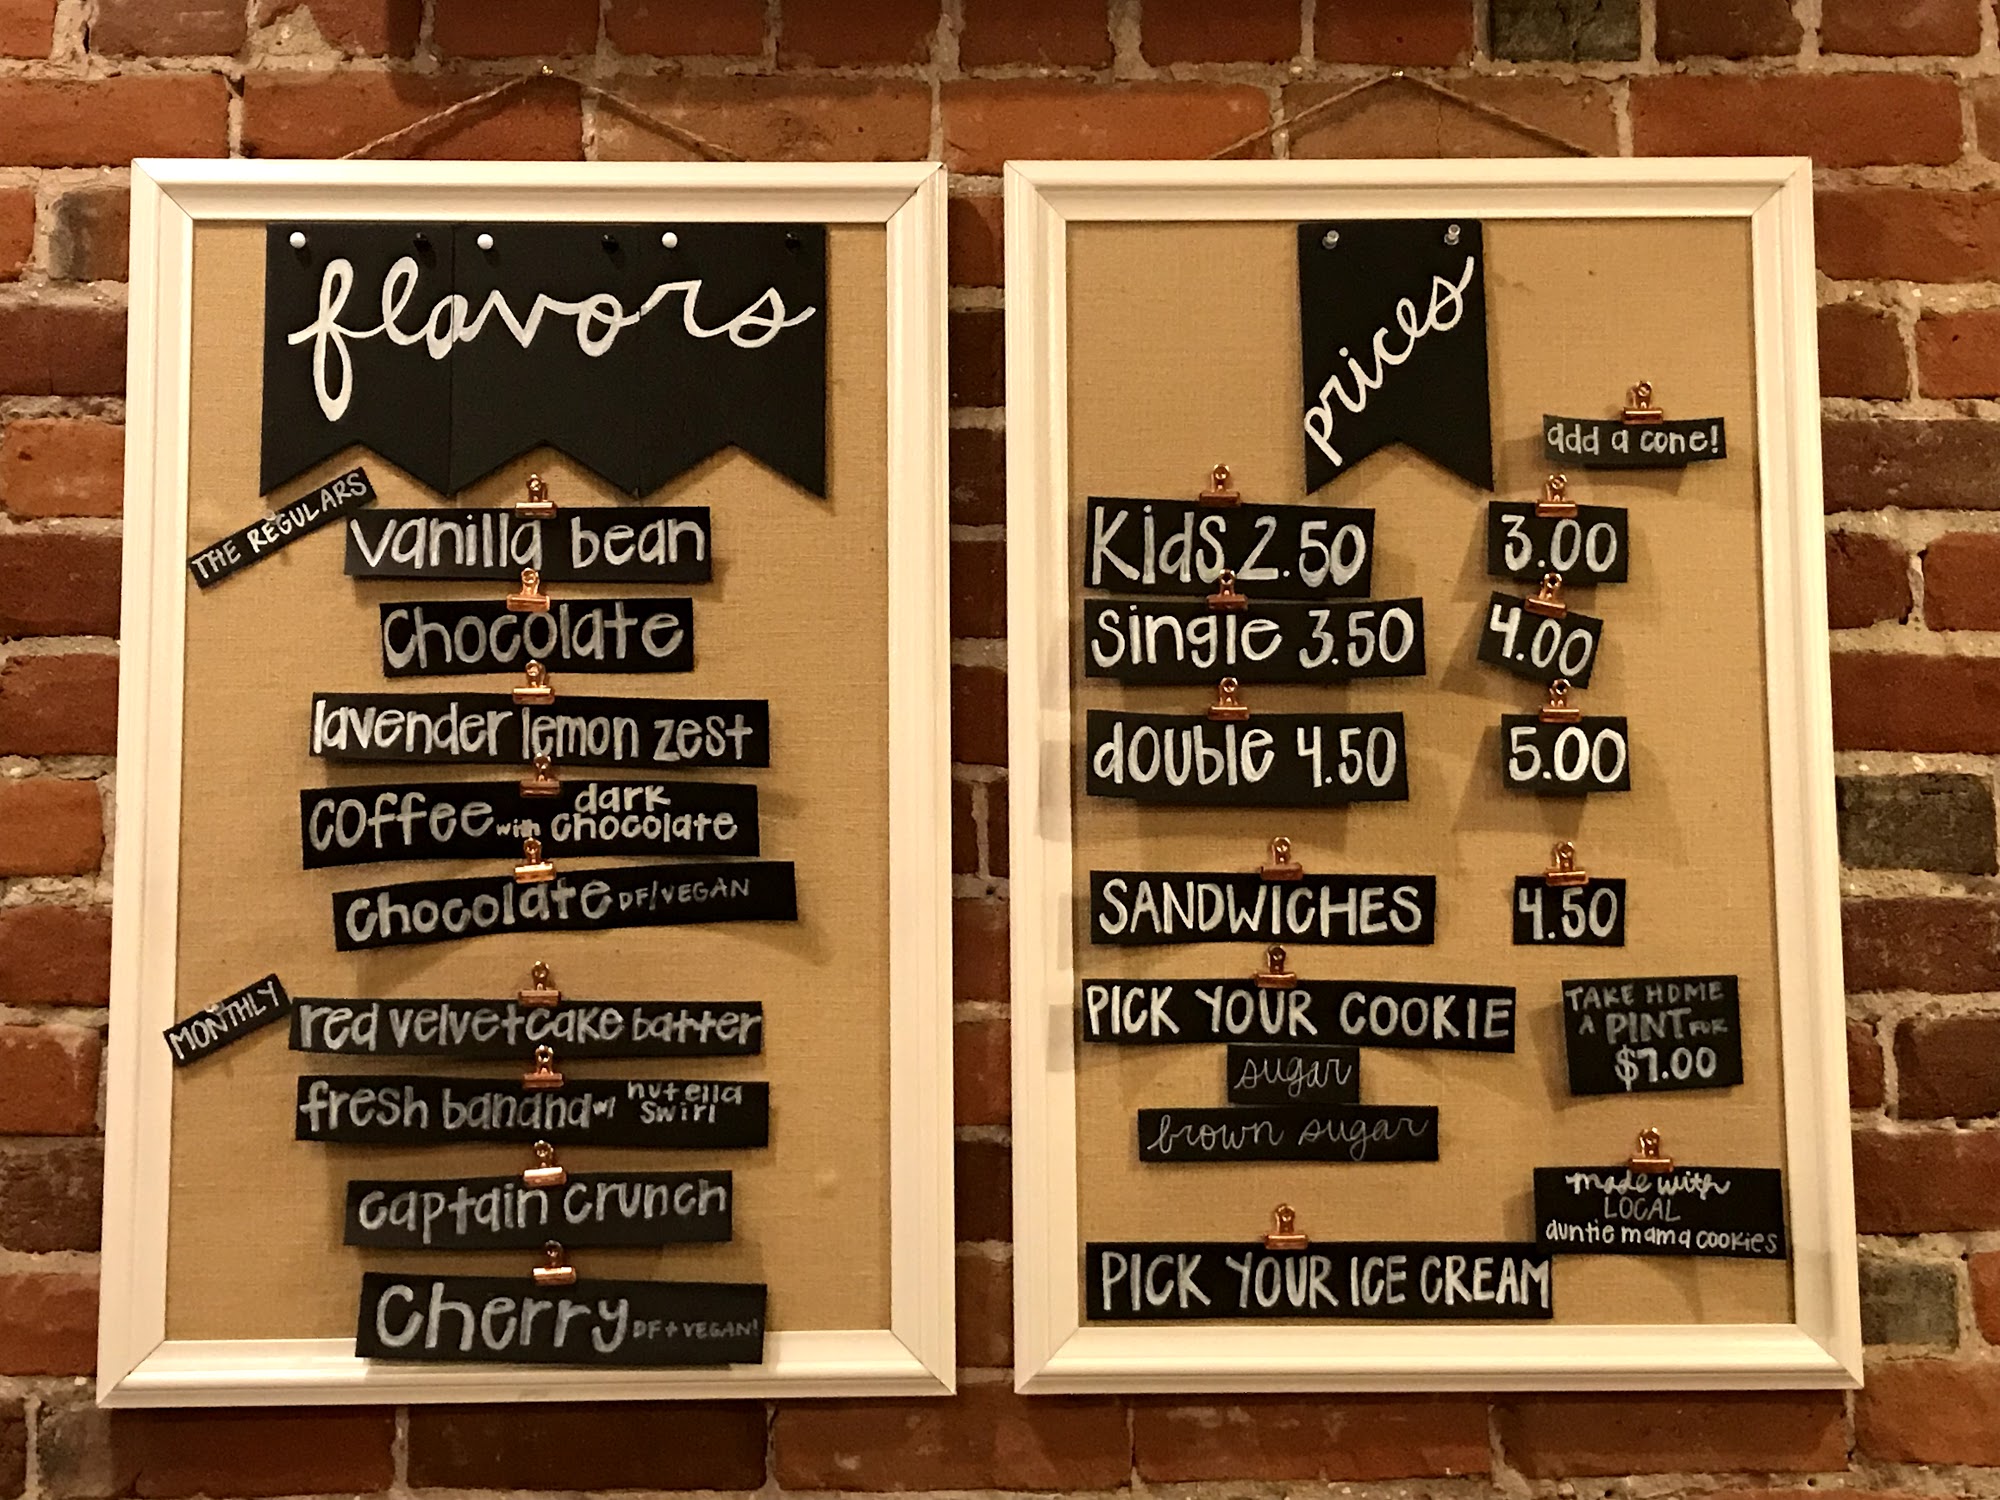 flavors
THE REGULARS
vanilla bean
chocolate
lavender lemon zest
coffee with dark chocolate
chocolate DF/VEGAN
MONTHLY
red velvet cake batter
fresh banana w/ nutella swirl
captain crunch
Cherry DF + VEGAN!
prices
add a cone!
Kids 2.50 3.00
single 3.50 4.00
double 4.50 5.00
SANDWICHES 4.50
PICK YOUR COOKIE
sugar
brown sugar
TAKE HOME
A PINT FOR
$7.00
made with
LOCAL
auntie mama cookies
PICK YOUR ICE CREAM